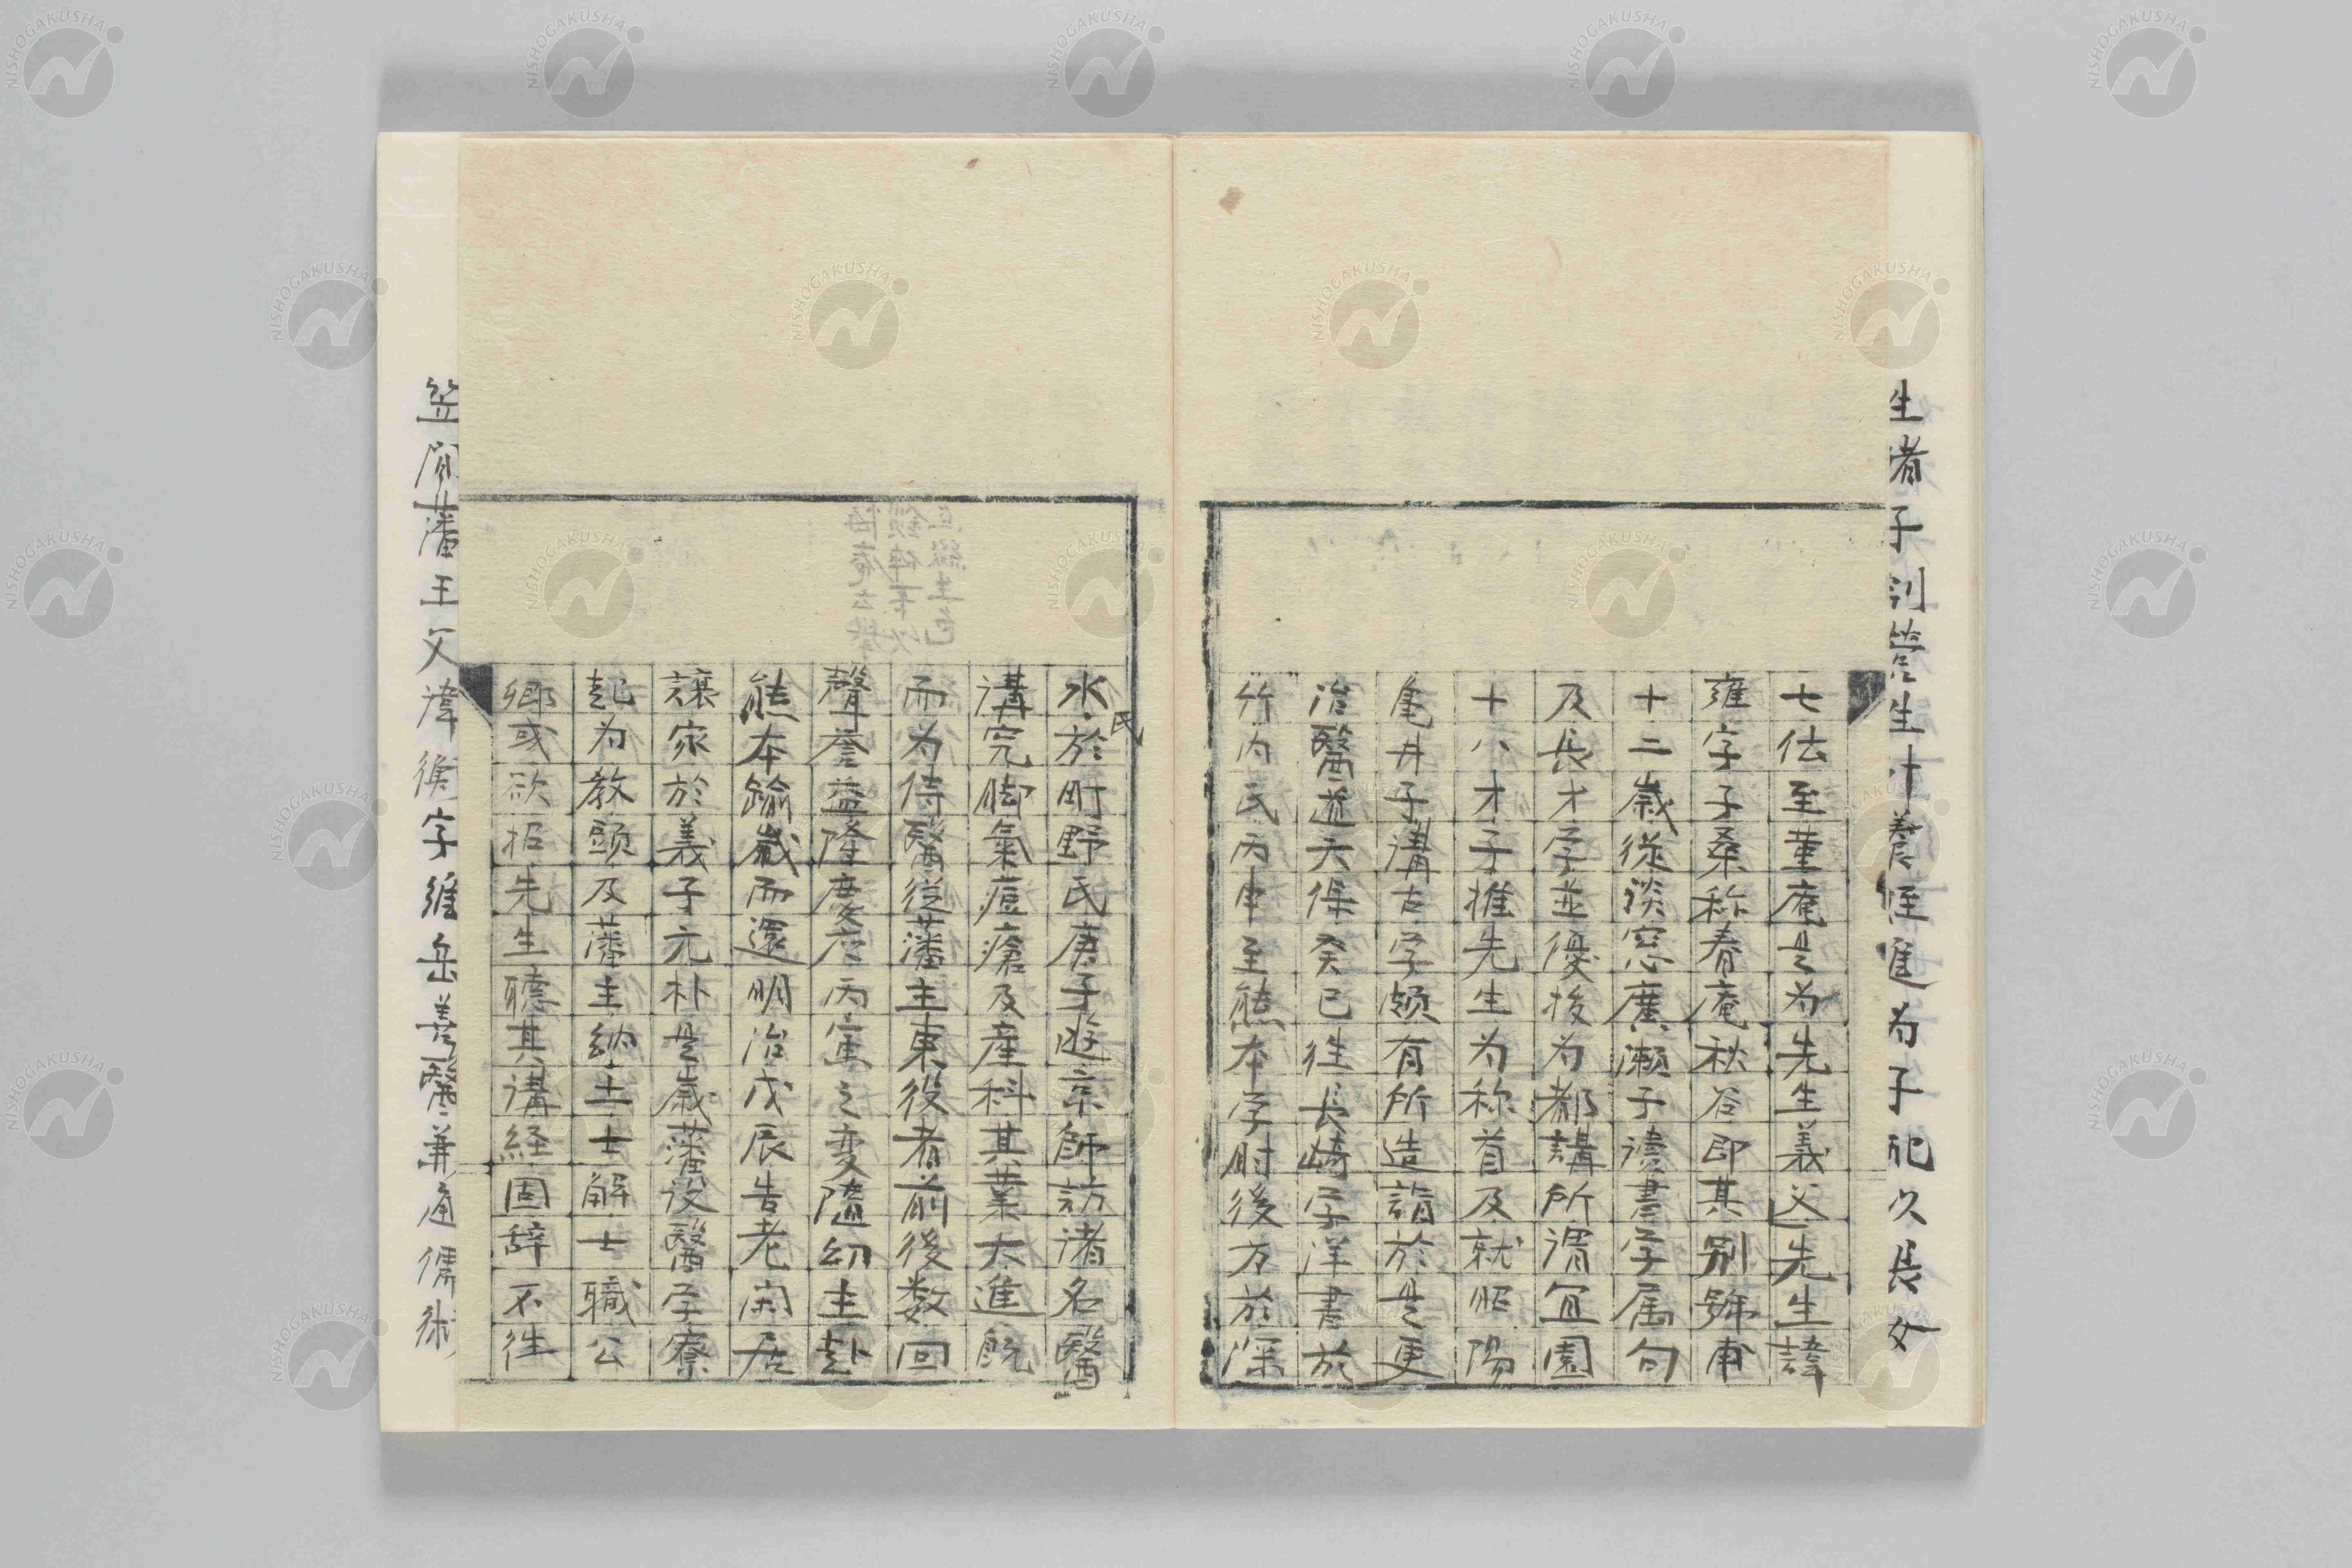 生者子則営生calculated養姪進為子配久長女
七伝至菫庵是為先生義父先生諱
雍字子桑称春庵秋谷即其別號甫
十二歳從淡窓廣瀬子讀書学属句
及長才学並優抜為都講所謂宜園
十八才子推先生為称首及就昭陽
亀井子講古学頗有所造詣於是更
治醫遊天保癸巳往長崎学洋書於
竹内氏丙申至熊本学財後方於深
水氏於町野氏庚子遊京師訪諸名醫
講究脚氣痘瘡及産科其業大進既
而为侍醫從藩主東役者前後数回
聲誉益隆慶應丙寅之変隨幼主赴
熊本踰歳而還明治戊辰告老閑居
譲家於義子元朴是歳藩設醫学寮
起为教頭及藩主納土士解士職公
鄉或欲招先生聴其講経固辞不往
笠間藩王父諱衡字維岳善醫兼通儒術
NISHOGAKUSHA